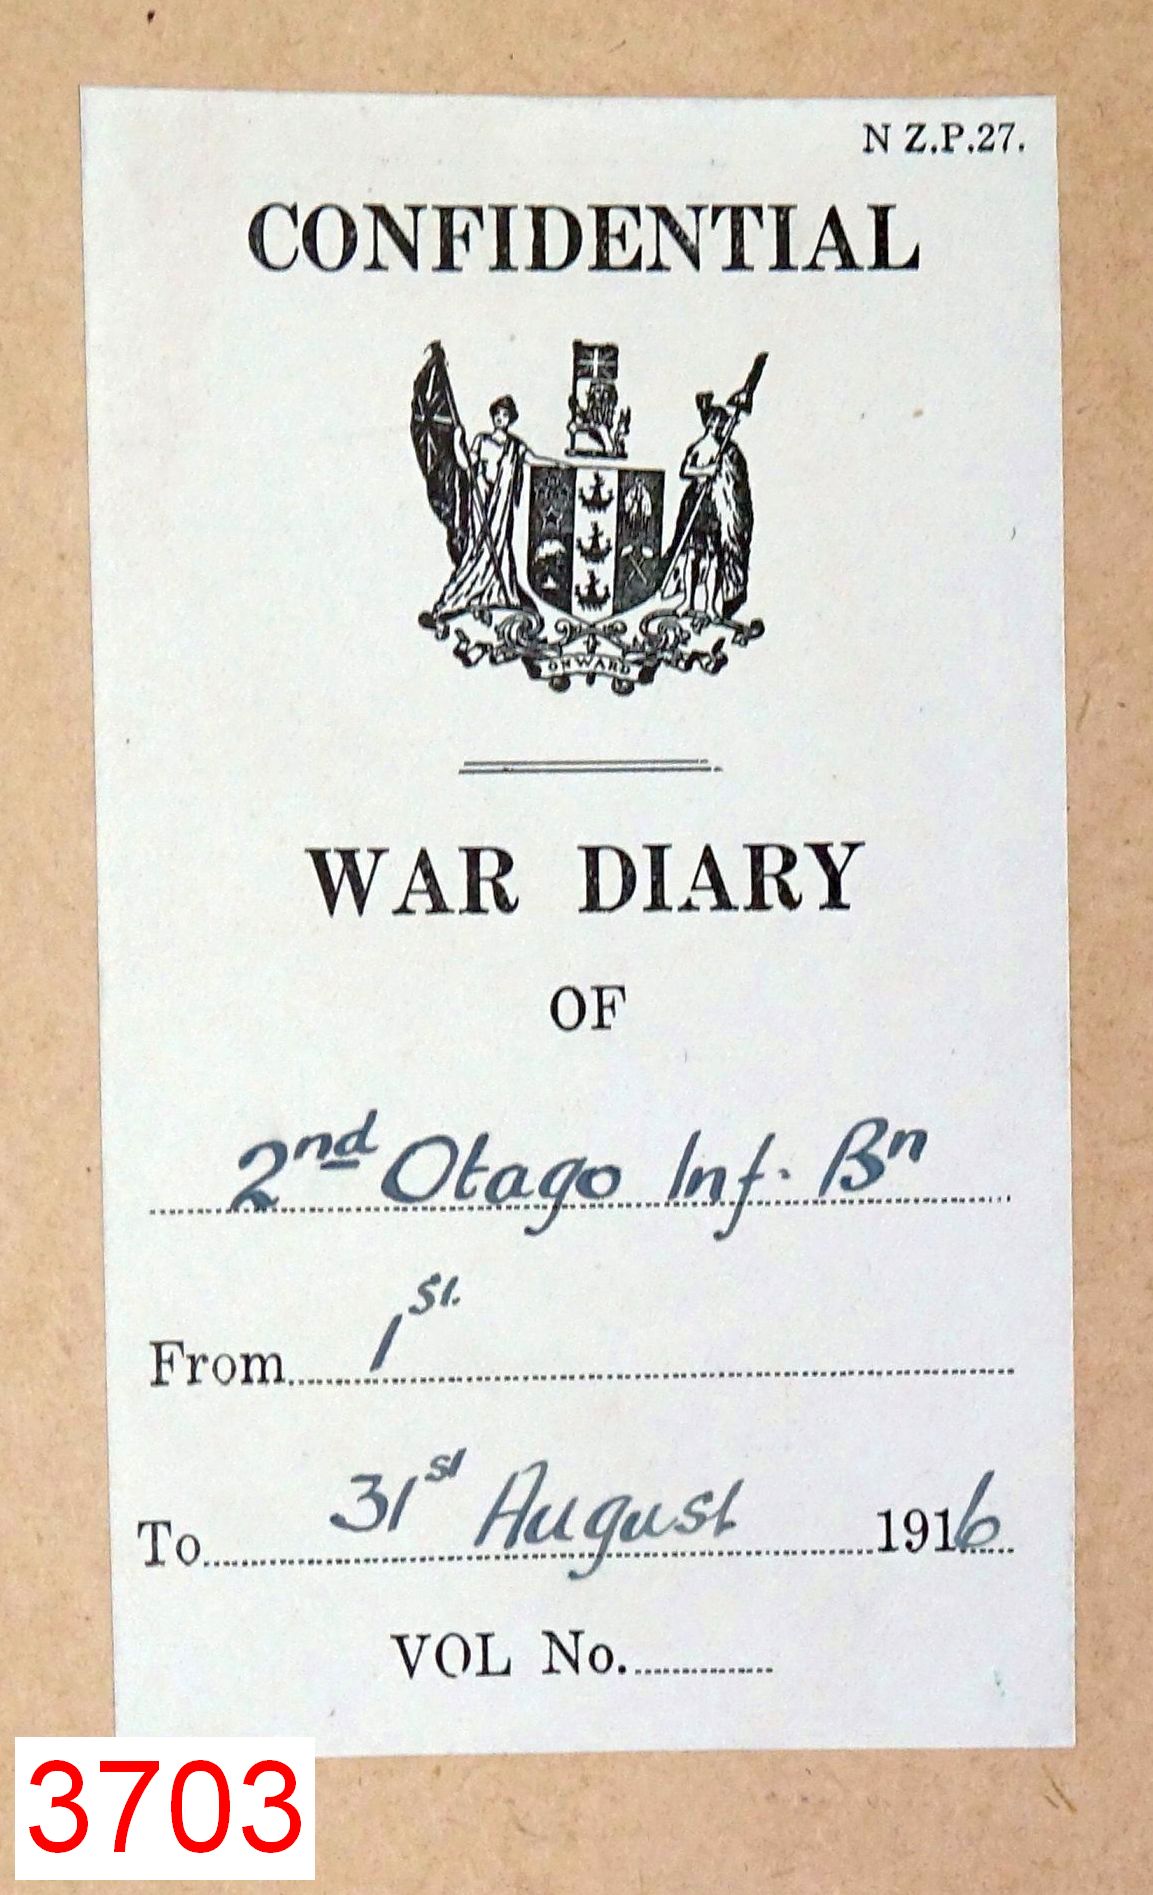 N Z.P.27.
CONFIDENTIAL
ONWARD
WAR DIARY
OF
2nd Otago Inf. Bn
From 1st.
To 31st August 1916
VOL No.
3703